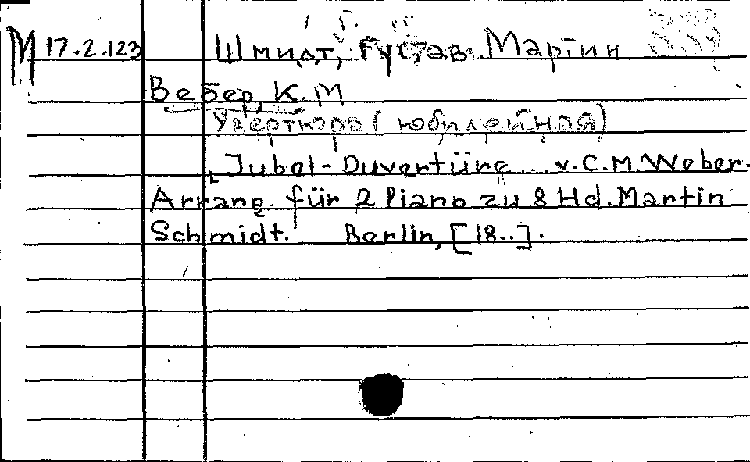 М 17.2.123 Шмидт, Густав Мартин
Вебер, К.М
Увертюра (юбилейная)
Jubel-Ouvertüre v.C.M.Weber.
Arrang. für 2 Piano zu 8 Hd. Martin
Schmidt. Berlin, [18..].